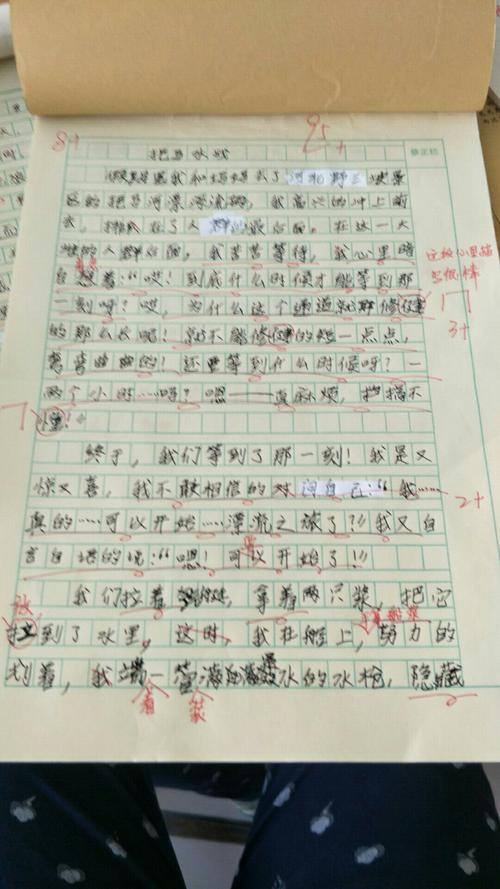 8+ 95+
拒马水战
修正栏
假期里我和妈妈去了河北野三坡景
区的拒马河漂流，我高兴的冲上前
去，排在了人群的最后面。在这一大
堆的人群后面，我苦苦等待，我心里暗
自想着：“哎！到底什么时候才能等到那
这段心里描写很棒
一刻呀？哎，为什么这个通道就那修建
3+
的那么长呢！就不能修建的短一点点，
弯弯曲曲的！还要等到什么时候呀？一
两个小时……吗？嗯——真麻烦，拦搞不
懂！
终于，我们等到了那一刻！我是又
惊又喜，我不敢相信的对问自己：“我……
2+
真的……可以开始……漂流之旅了？！我又自
言自语的说：“嗯！可以开始了！！！
我们拉着，拿着两只桨，把它
放
拉到了水里，这时，我在船上，努力的
划着，我端一管水的水枪，隐藏
着 装